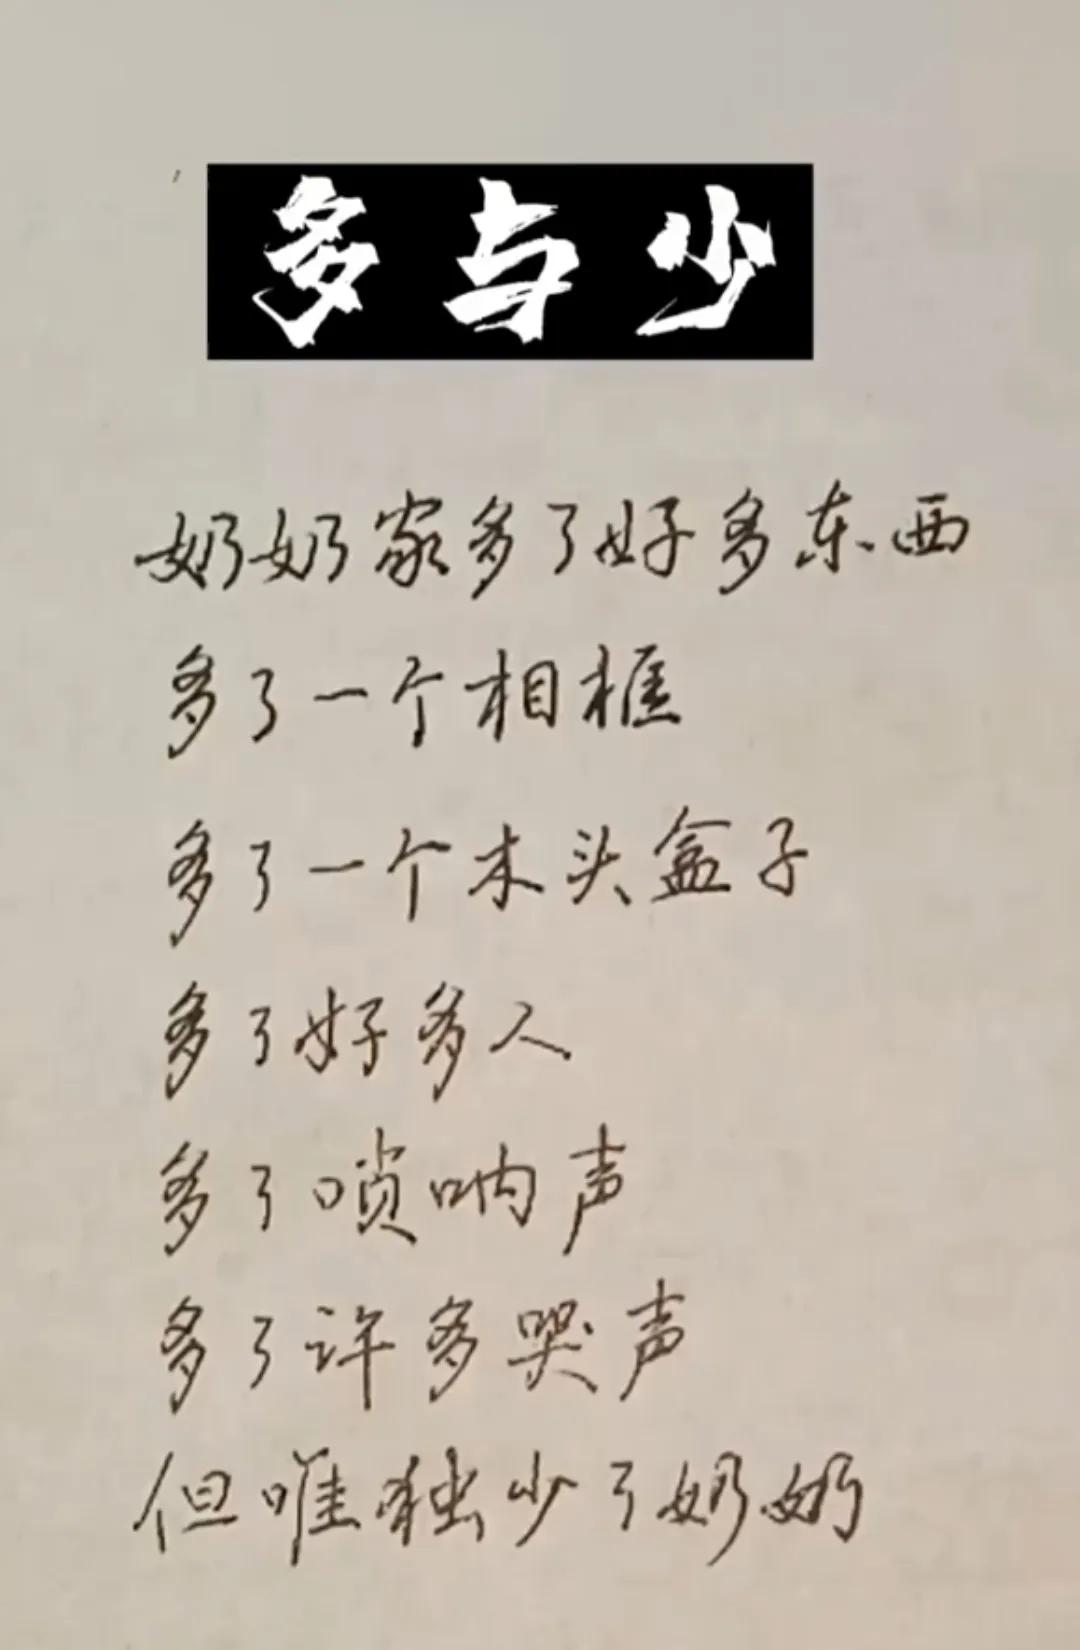 多与少
奶奶家多了好多东西
多了一个相框
多了一个木头盒子
多了好多人
多了唢呐声
多了许多哭声
但唯独少了奶奶